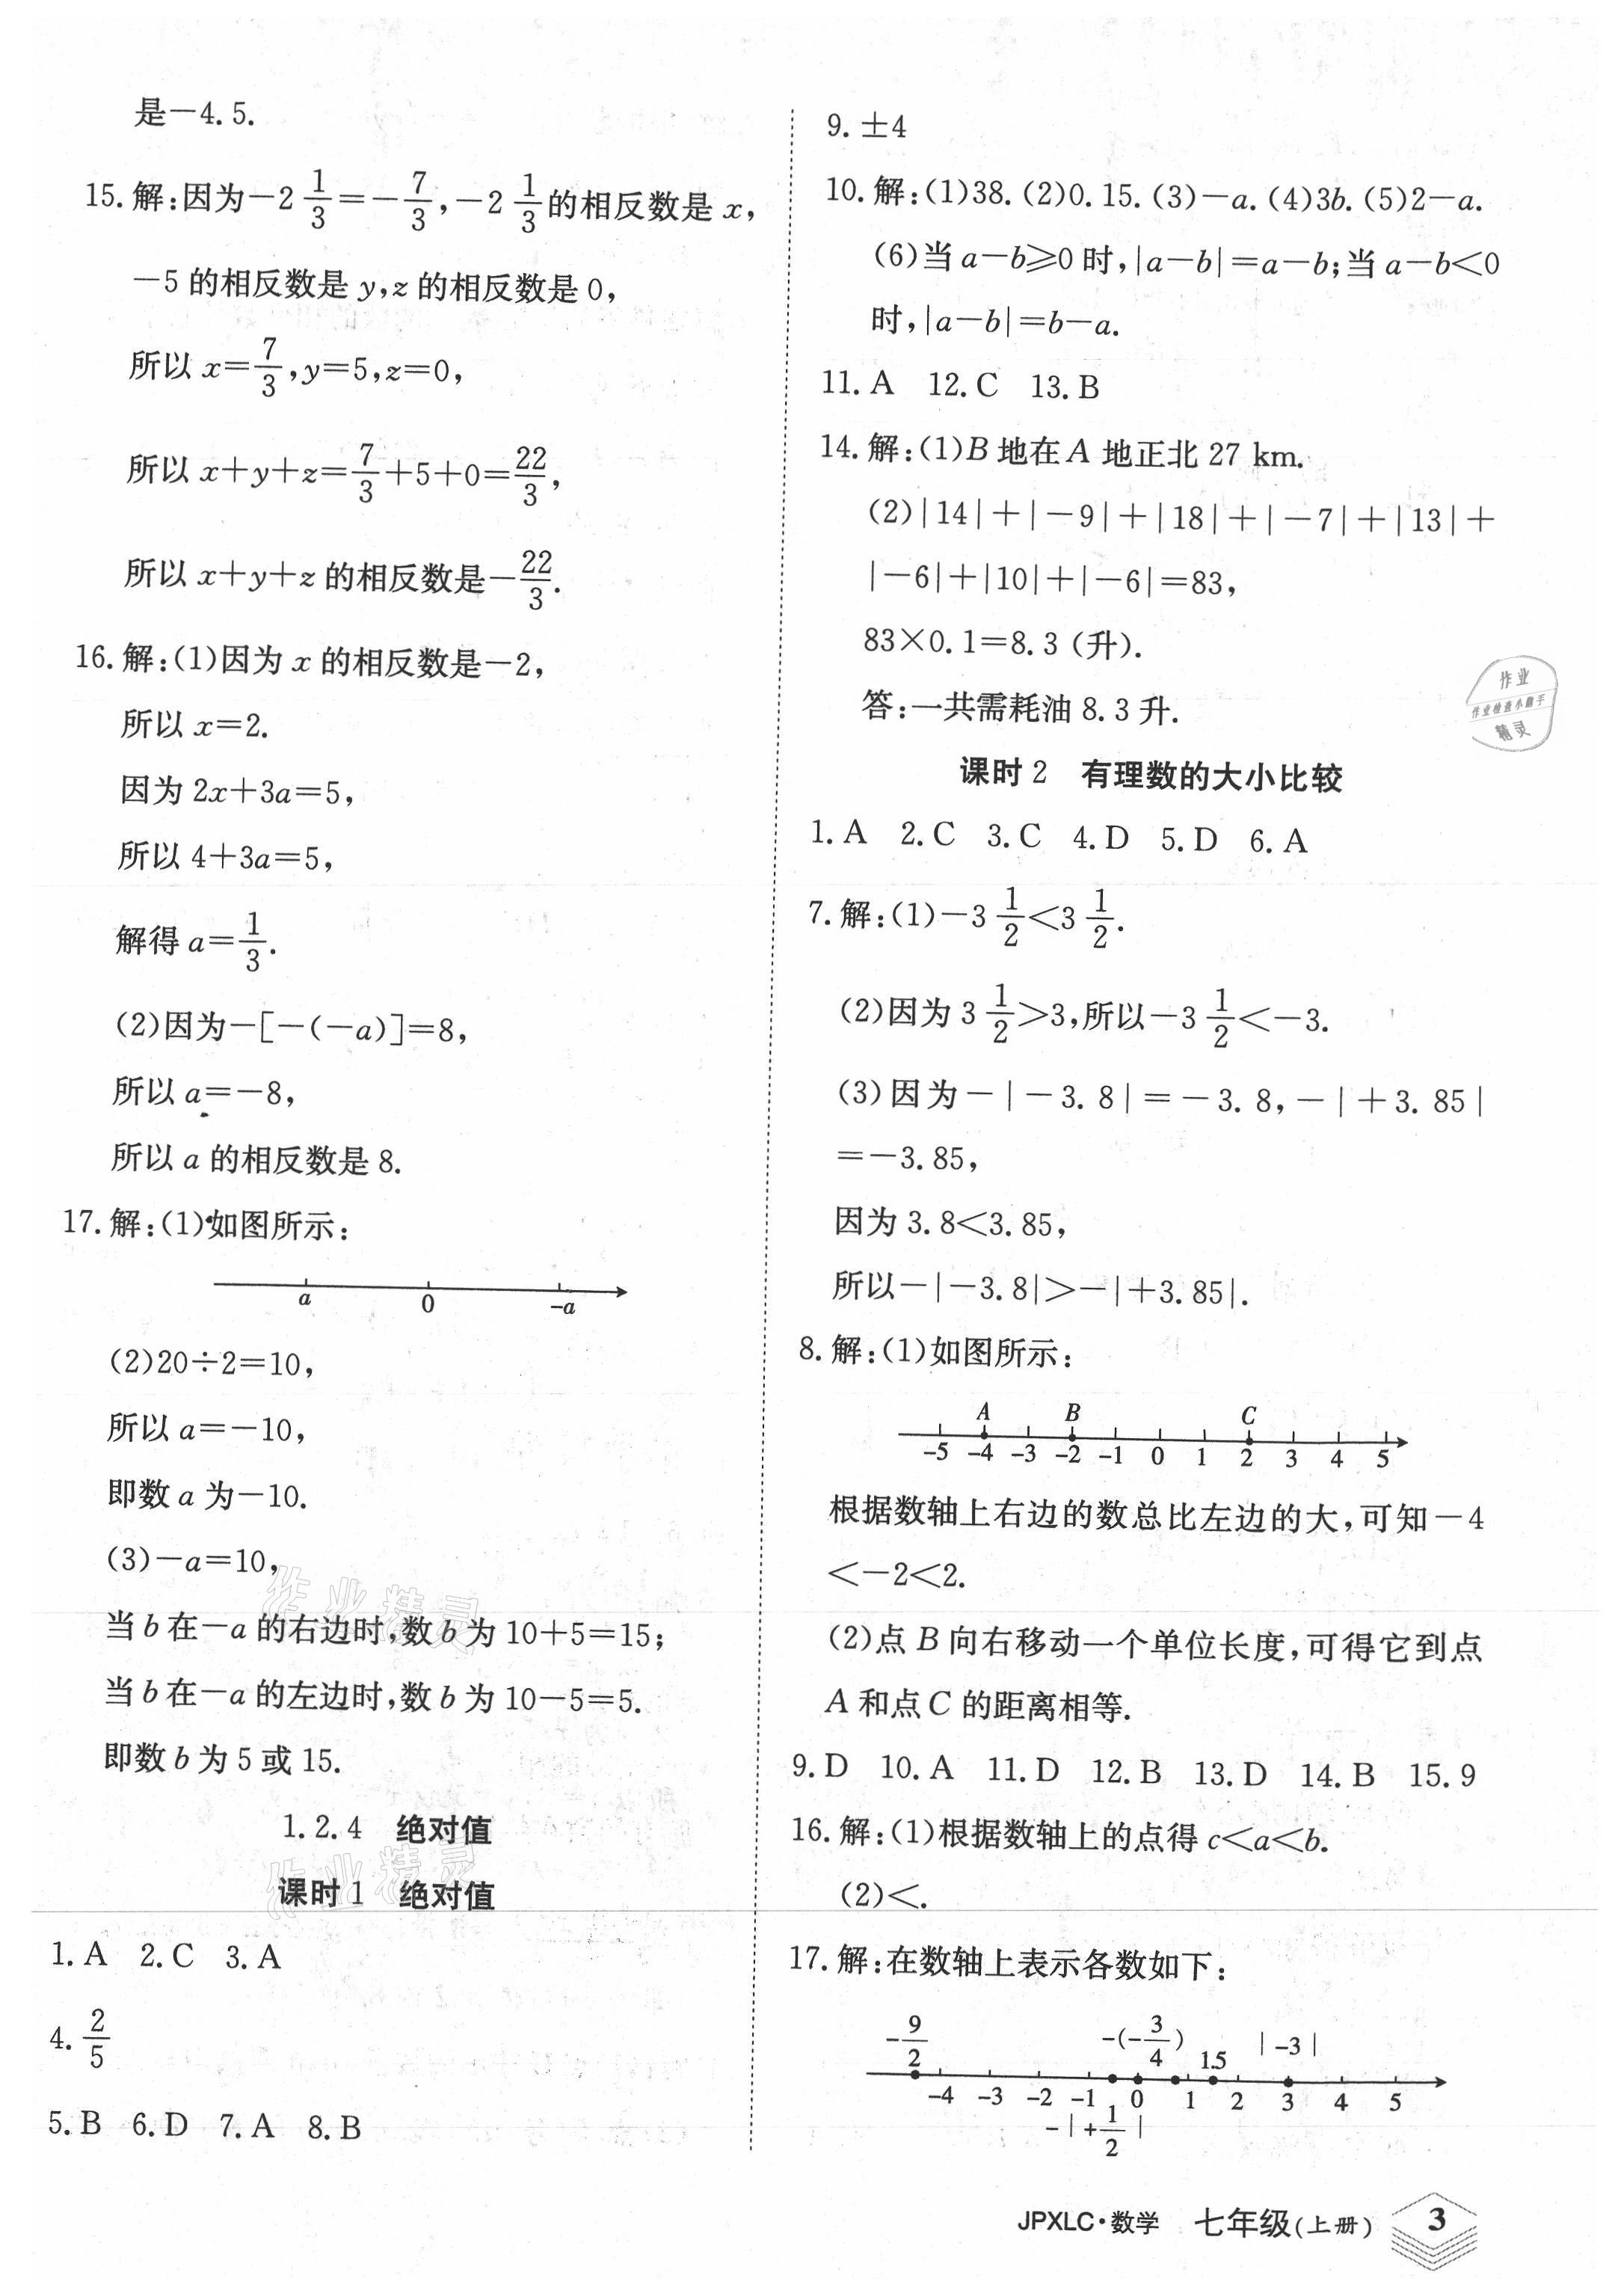 是−4.5.
15.解:因为−2 1/3=−7/3,−2 1/3的相反数是x,
−5的相反数是y,z的相反数是0,
所以x=7/3,y=5,z=0,
所以x+y+z=7/3+5+0=22/3,
所以x+y+z的相反数是−22/3.
16.解:(1)因为x的相反数是−2,
所以x=2.
因为2x+3a=5,
所以4+3a=5,
解得a=1/3.
(2)因为−[−(−a)]=8,
所以a=−8,
所以a的相反数是8.
17.解:(1)如图所示:
a 0 −a
(2)20÷2=10,
所以a=−10,
即数a为−10.
(3)−a=10,
当b在−a的右边时,数b为10+5=15;
当b在−a的左边时,数b为10−5=5.
即数b为5或15.
1.2.4 绝对值
课时1 绝对值
1.A 2.C 3.A
4. 2/5
5.B 6.D 7.A 8.B
9.±4
10.解:(1)38.(2)0.15.(3)−a.(4)3b.(5)2−a.
(6)当a−b⩾0时,|a−b|=a−b;当a−b<0
时,|a−b|=b−a.
11.A 12.C 13.B
14.解:(1)B地在A地正北27 km.
(2)|14|+|−9|+|18|+|−7|+|13|+
|−6|+|10|+|−6|=83,
83×0.1=8.3(升).
答:一共需耗油8.3升.
课时2 有理数的大小比较
1.A 2.C 3.C 4.D 5.D 6.A
7.解:(1)−3 1/2<3 1/2.
(2)因为3 1/2>3,所以−3 1/2<−3.
(3)因为−|−3.8|=−3.8,−|+3.85|
=−3.85,
因为3.8<3.85,
所以−|−3.8|>−|+3.85|.
8.解:(1)如图所示:
A B C
−5 −4 −3 −2 −1 0 1 2 3 4 5
根据数轴上右边的数总比左边的大,可知−4
<−2<2.
(2)点B向右移动一个单位长度,可得它到点
A和点C的距离相等.
9.D 10.A 11.D 12.B 13.D 14.B 15.9
16.解:(1)根据数轴上的点得c<a<b.
(2)<.
17.解:在数轴上表示各数如下:
−9/2 −(−3/4) 1.5 |−3|
−4 −3 −2 −1 0 1 2 3 4 5
−|+1/2|
JPXLC·数学 七年级(上册) 3
作业
作业检查小助手
精灵
作业精灵
作业精灵